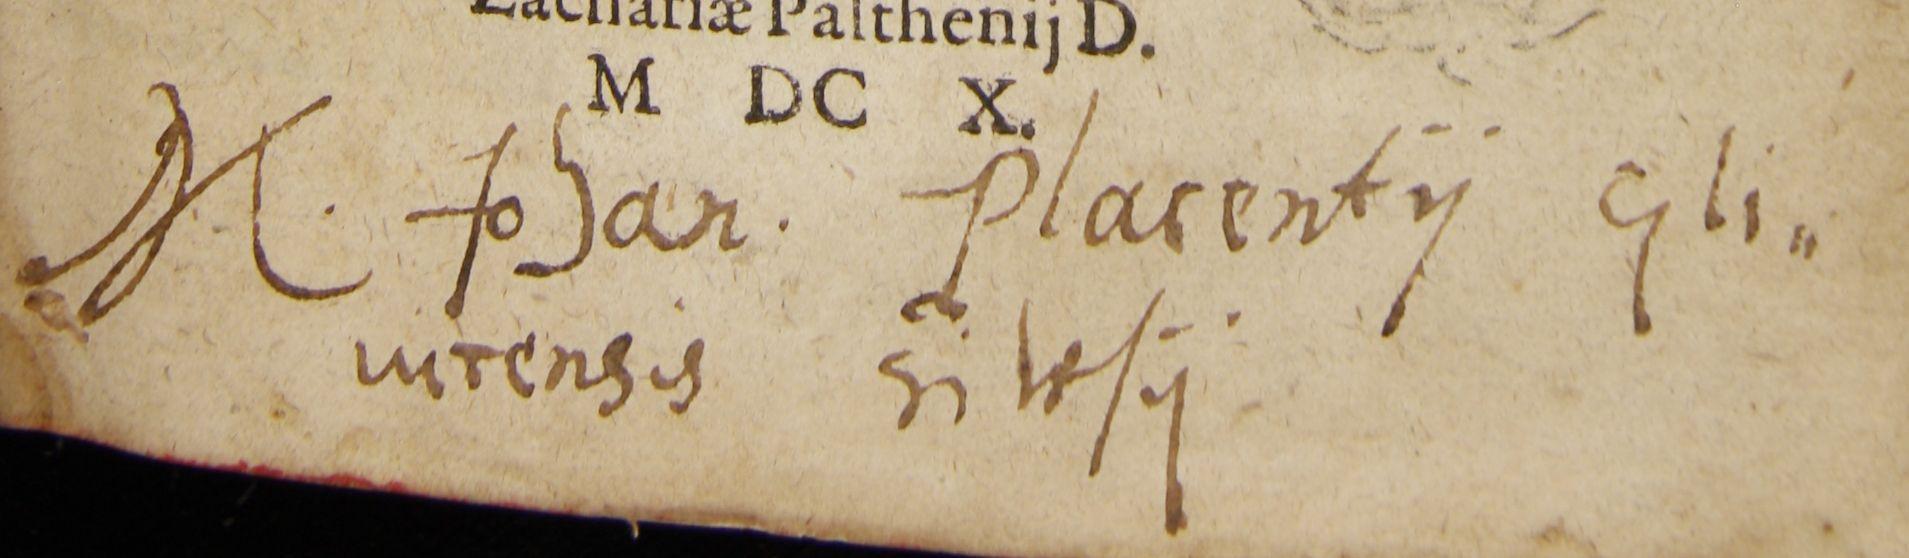 Zachariæ Palthenij D.
M DC X.
M. Johan. Placentij Gli„
uicensis Silesij